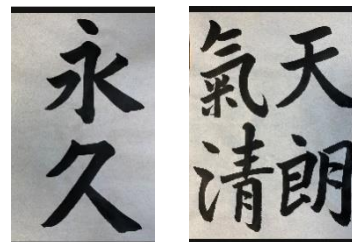 永久
天朗
氣清